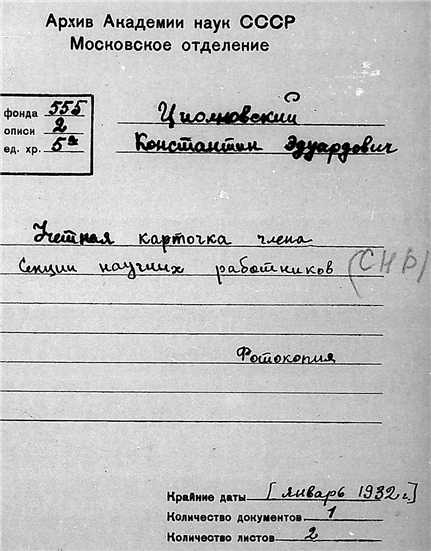 Архив Академии наук СССР
Московское отделение
фонда 555
описи 2
ед. хр. 5а
Циолковский
Константин Эдуардович
Учетная карточка члена
Секции научных работников (СНР)
Фотокопия
Крайние даты [январь 1932 г.]
Количество документов 1
Количество листов 2